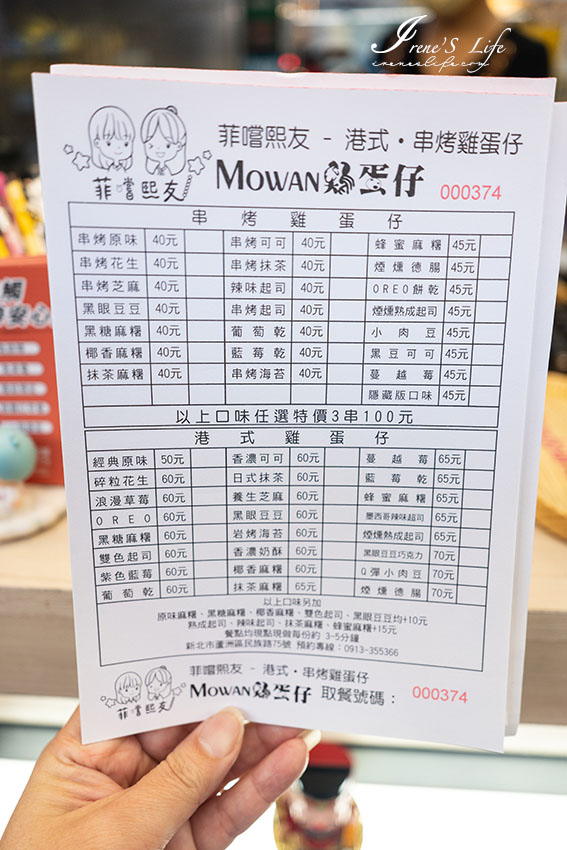 Irene'S Life
ireneslife.com
菲嚐熙友 - 港式·串烤雞蛋仔
菲嚐熙友
MOWAN雞蛋仔 000374
串烤雞蛋仔
串烤原味 40元 串烤可可 40元 蜂蜜麻糬 45元
串烤花生 40元 串烤抹茶 40元 煙燻德腸 45元
串烤芝麻 40元 辣味起司 40元 OREO餅乾 45元
黑眼豆豆 40元 串烤起司 40元 煙燻熟成起司 45元
黑糖麻糬 40元 葡萄乾 40元 小肉豆 45元
椰香麻糬 40元 藍莓乾 40元 黑豆可可 45元
抹茶麻糬 40元 串烤海苔 40元 蔓越莓 45元
隱藏版口味 45元
以上口味任選特價3串100元
港式雞蛋仔
經典原味 50元 香濃可可 60元 蔓越莓 65元
碎粒花生 60元 日式抹茶 60元 藍莓乾 65元
浪漫草莓 60元 養生芝麻 60元 蜂蜜麻糬 65元
OREO 60元 黑眼豆豆 60元 墨西哥辣味起司 65元
黑糖麻糬 60元 岩烤海苔 60元 煙燻熟成起司 65元
雙色起司 60元 香濃奶酥 60元 黑眼豆豆巧克力 70元
紫色藍莓 60元 椰香麻糬 60元 Q彈小肉豆 70元
葡萄乾 60元 抹茶麻糬 65元 煙燻德腸 70元
以上口味另加
原味麻糬、黑糖麻糬、椰香麻糬、雙色起司、黑眼豆豆均+10元
熟成起司、辣味起司、抹茶麻糬、蜂蜜麻糬+15元
餐點均現點現做每份約 3-5分鐘
新北市蘆洲區民族路75號 預約專線：0913-355366
菲嚐熙友 - 港式·串烤雞蛋仔
菲嚐熙友
MOWAN雞蛋仔 取餐號碼： 000374